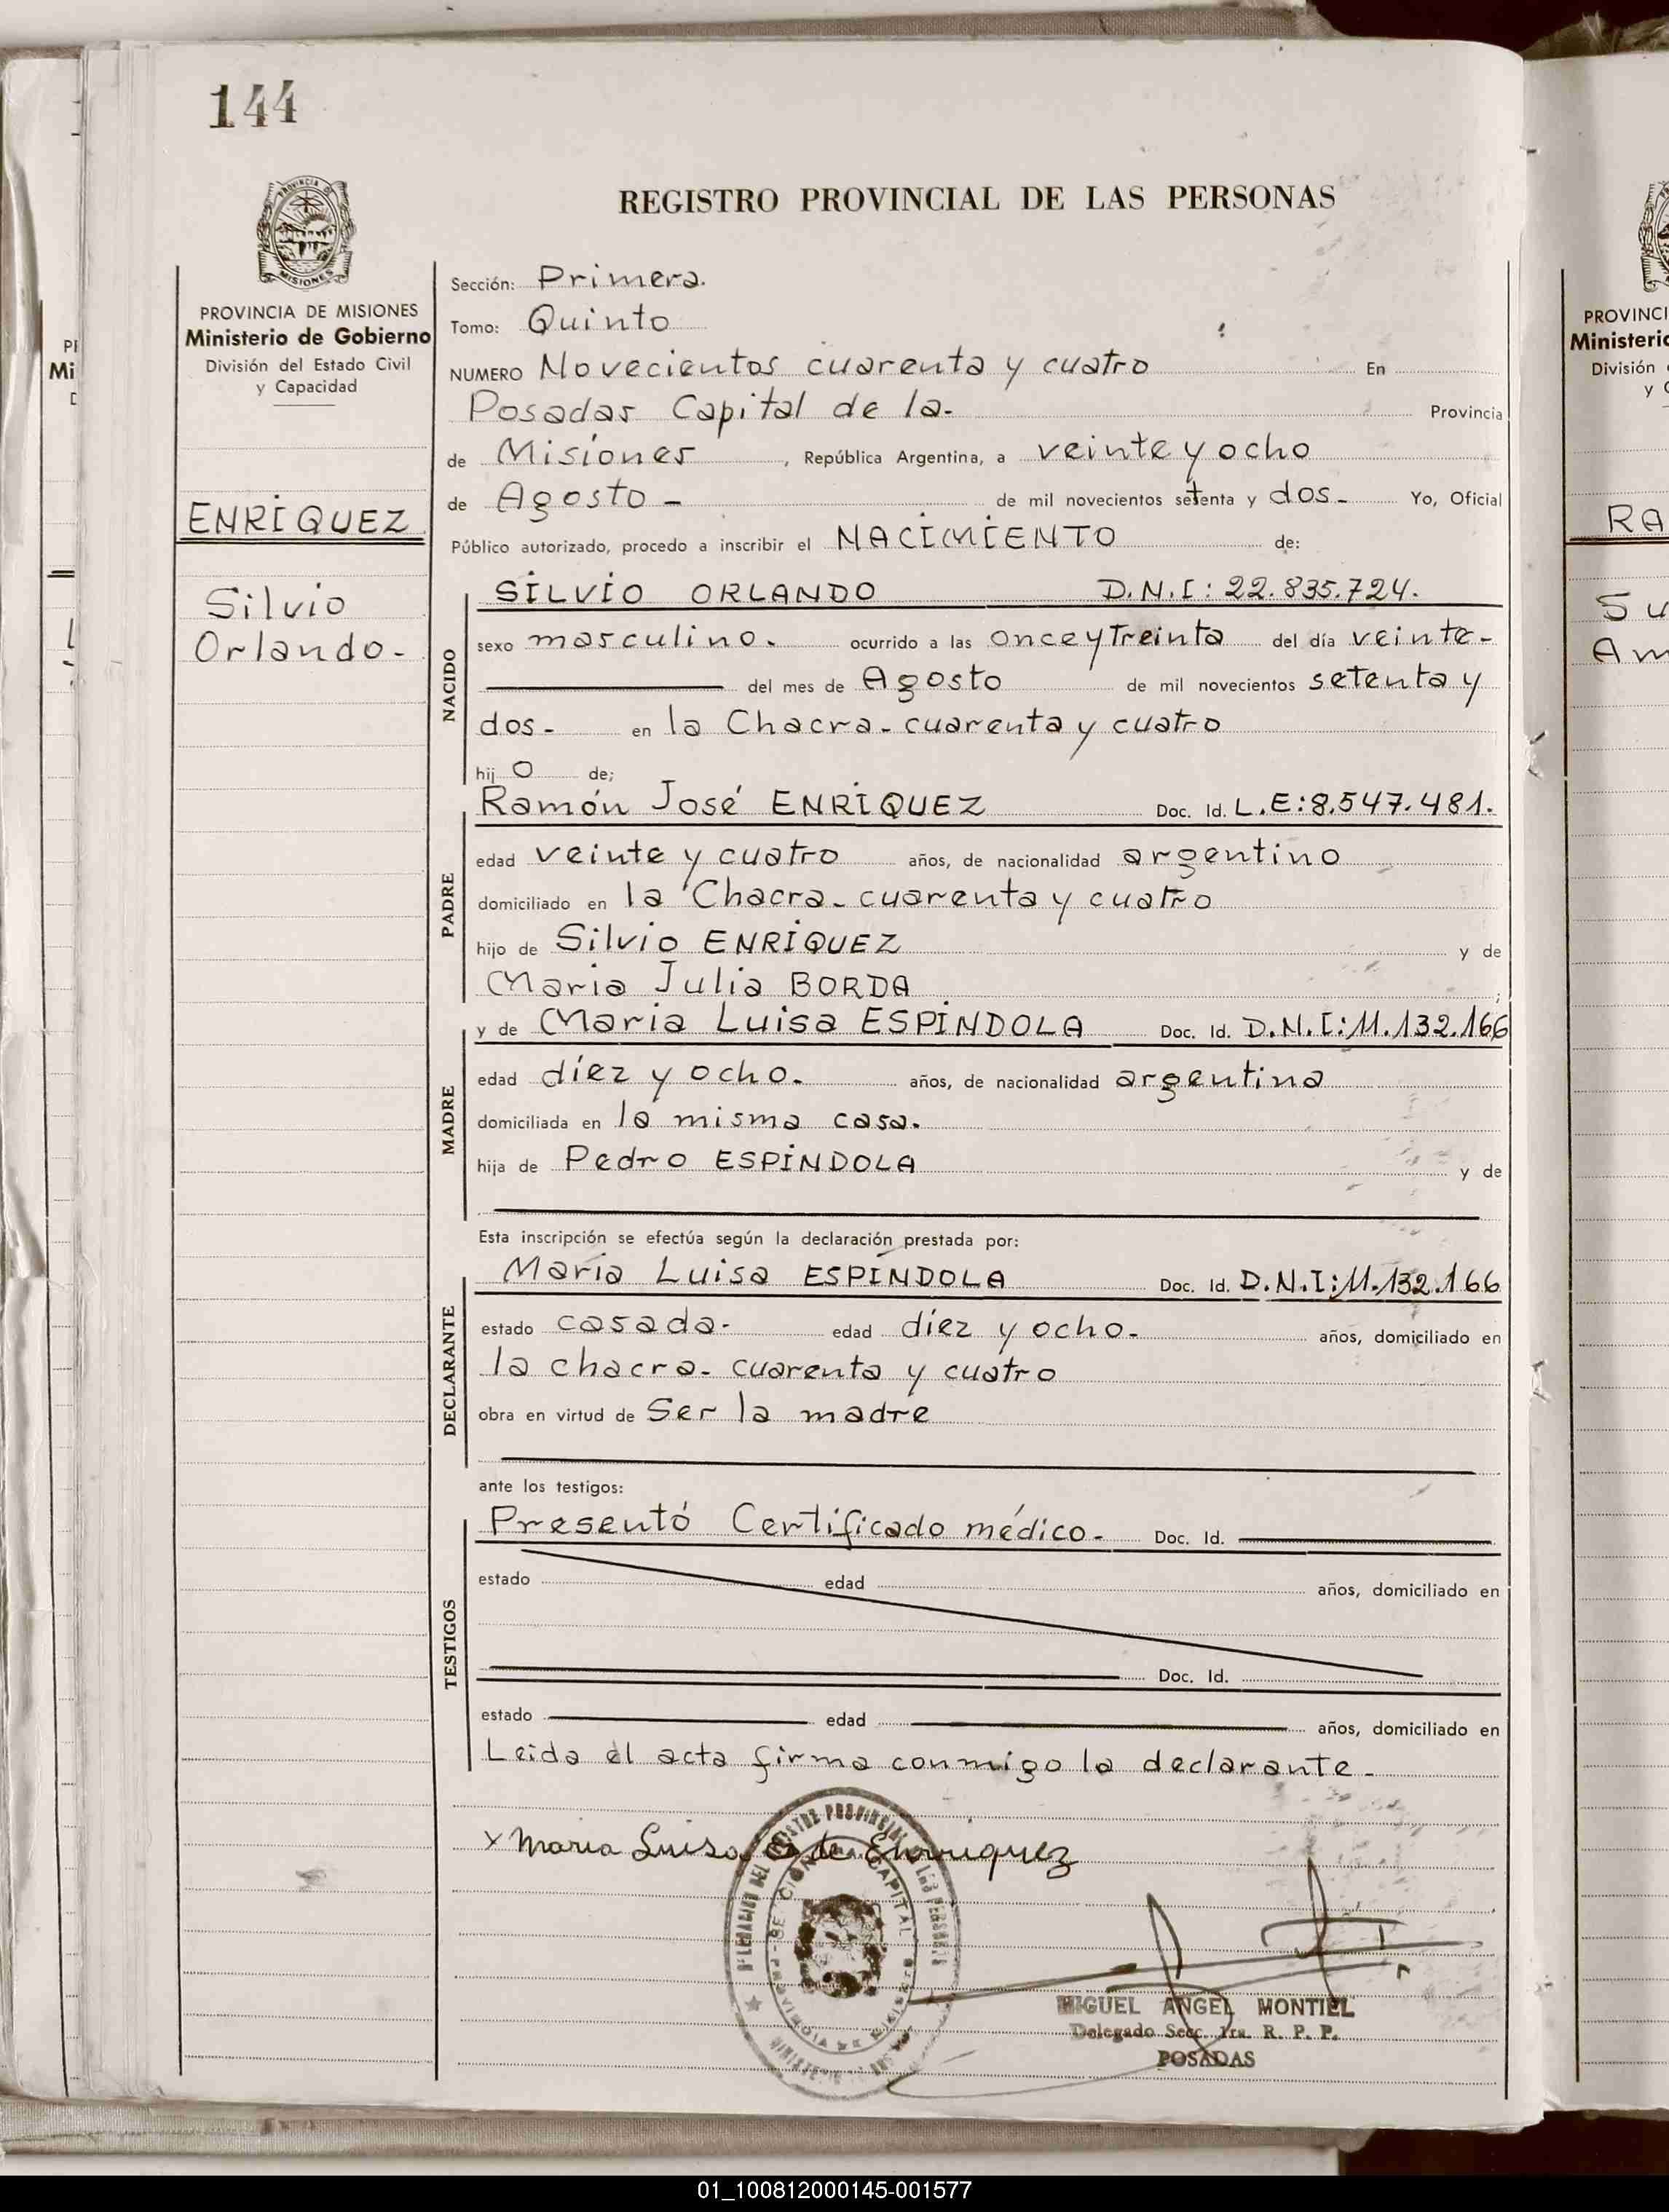 144
REGISTRO PROVINCIAL DE LAS PERSONAS
PROVINCIA DE
MISIONES
PROVINCIA DE MISIONES
Ministerio de Gobierno
División del Estado Civil
y Capacidad
ENRIQUEZ
Silvio
Orlando-
Sección: Primera.
Tomo: Quinto
NUMERO Novecientos cuarenta y cuatro En
Posadas Capital de la- Provincia
de Misiones, República Argentina, a veinte y ocho
de Agosto - de mil novecientos setenta y dos- Yo, Oficial
Público autorizado, procedo a inscribir el NACIMIENTO de:
NACIDO
SILVIO ORLANDO D.N.I: 22.835.724.
sexo masculino. ocurrido a las once y Treinta del día veinte-
del mes de Agosto de mil novecientos setenta y
dos- en la Chacra- cuarenta y cuatro
hij o de;
PADRE
Ramón José ENRIQUEZ Doc. Id. L.E:8.547.481.
edad veinte y cuatro años, de nacionalidad argentino
domiciliado en la Chacra- cuarenta y cuatro
hijo de Silvio ENRIQUEZ y de
Maria Julia BORDA ;
MADRE
y de Maria Luisa ESPINDOLA Doc. Id. D.N.I:11.132.166
edad diez y ocho. años, de nacionalidad argentina
domiciliada en la misma casa.
hija de Pedro ESPINDOLA y de
Esta inscripción se efectúa según la declaración prestada por:
DECLARANTE
Maria Luisa ESPINDOLA Doc. Id. D.N.I:11.132.166
estado casada- edad diez y ocho- años, domiciliado en
la chacra- cuarenta y cuatro
obra en virtud de Ser la madre
ante los testigos:
TESTIGOS
Presentó Certificado médico- Doc. Id.
estado edad años, domiciliado en
Doc. Id.
estado edad años, domiciliado en
Leida el acta firma conmigo la declarante-
x Maria Luisa de Enriquez
MIGUEL ANGEL MONTIEL
Delegado Secc. 1ra R. P. P.
POSADAS
01_100812000145-001577